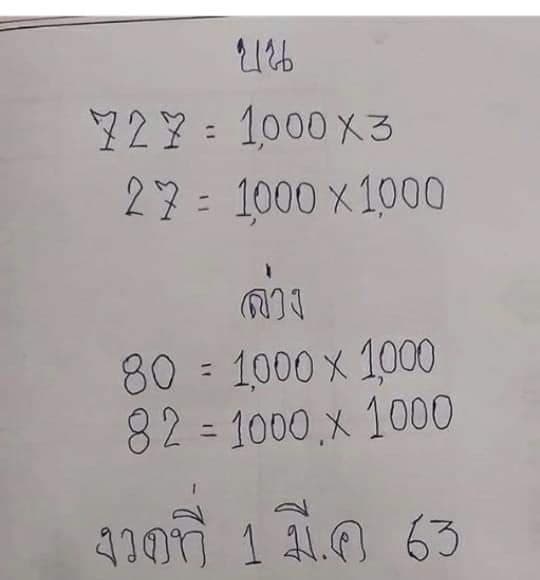 บน
727 = 1,000 x 3
27 = 1,000 x 1,000
ล่าง
80 = 1,000 x 1,000
82 = 1000 . x 1000
งวดที่ 1 มี.ค 63